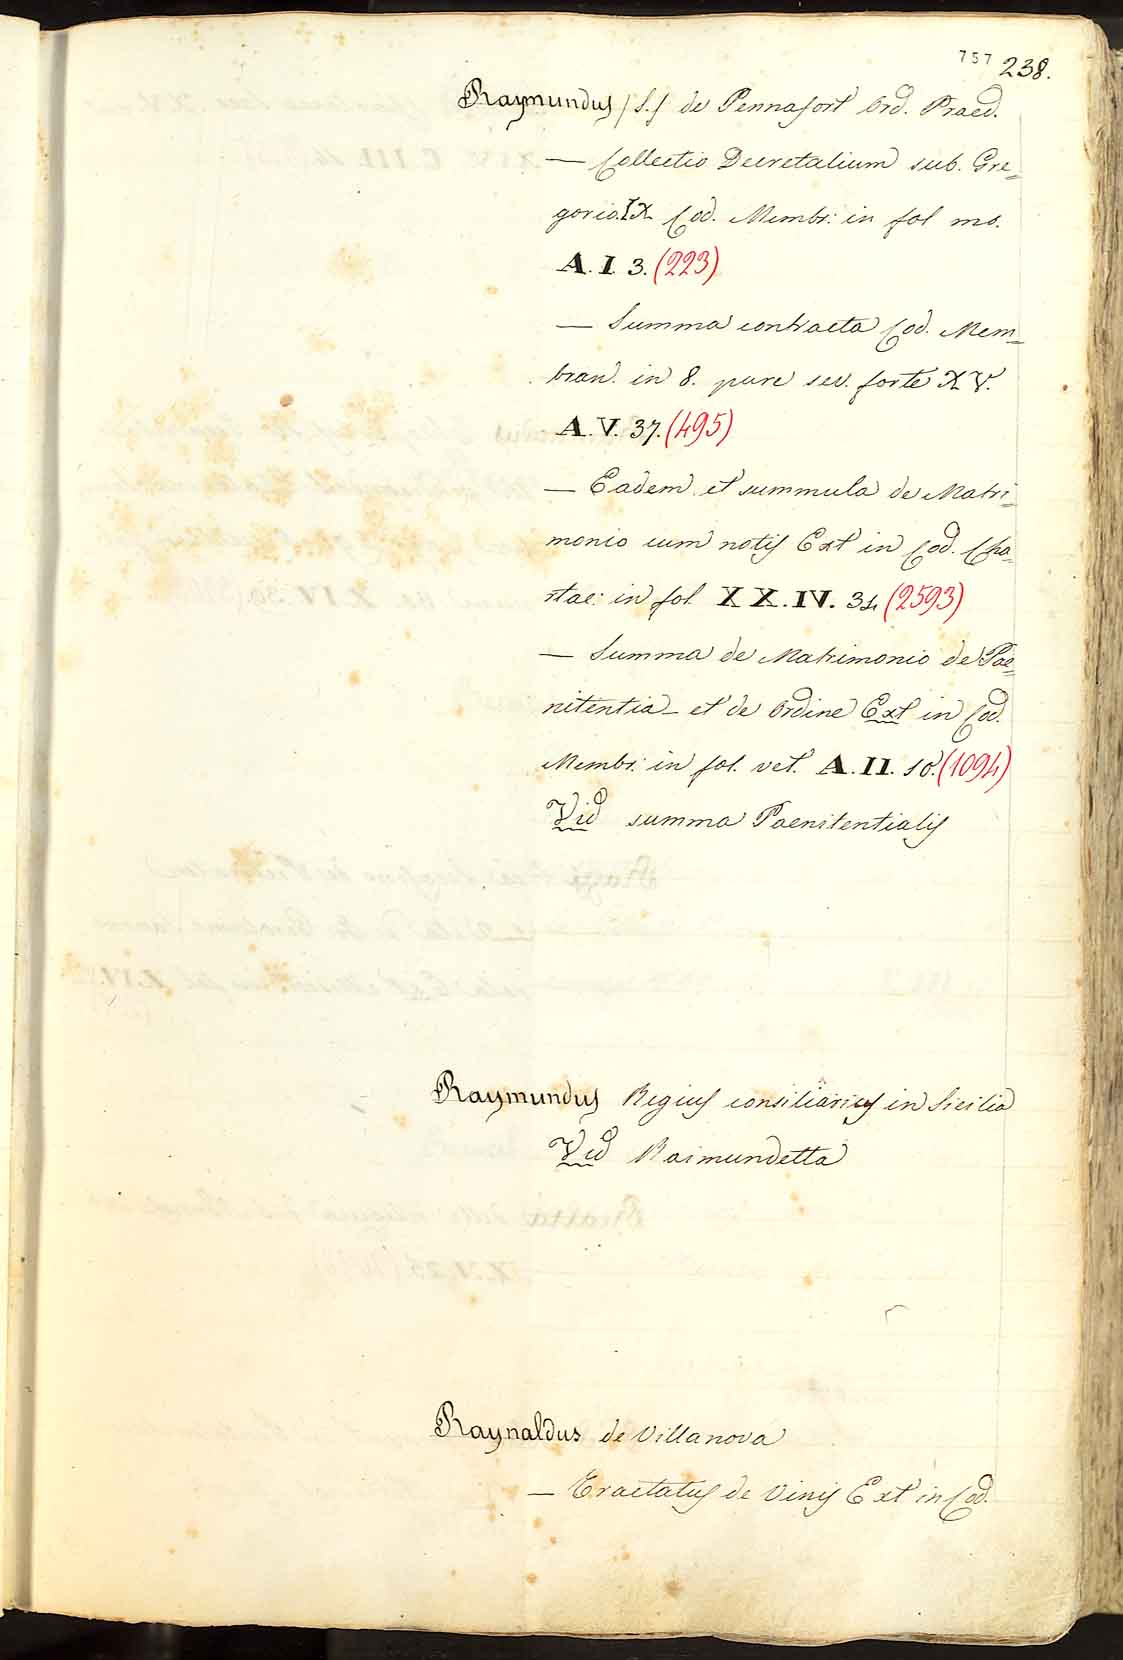 757 238.
Raymundus /S./ de Pennafort Ord. Praed.
— Collectio Decretalium sub. Gre=
gorio. IX Cod. Membr: in fol mo.
A. I. 3. (223)
— Summa contracta Cod. Mem=
bran. in 8. parv sec. forte XV.
A. V. 37. (495)
— Eadem et summula de Matri=
monio cum notis Ext in Cod. Cha=
rtac: in fol XX. IV. 34 (2593)
— Summa de Matrimonio de Poe=
nitentia_ et de Ordine Ext in Cod.
Membr: in fol. vet. A. II. 10. (1094)
Vid summa Paenitentialis
Raymundus Regius consiliarius in Sicilia
Vid Raimundetta
Raynaldus de Villanova
— Tractatus de Vinis Ext in Cod.